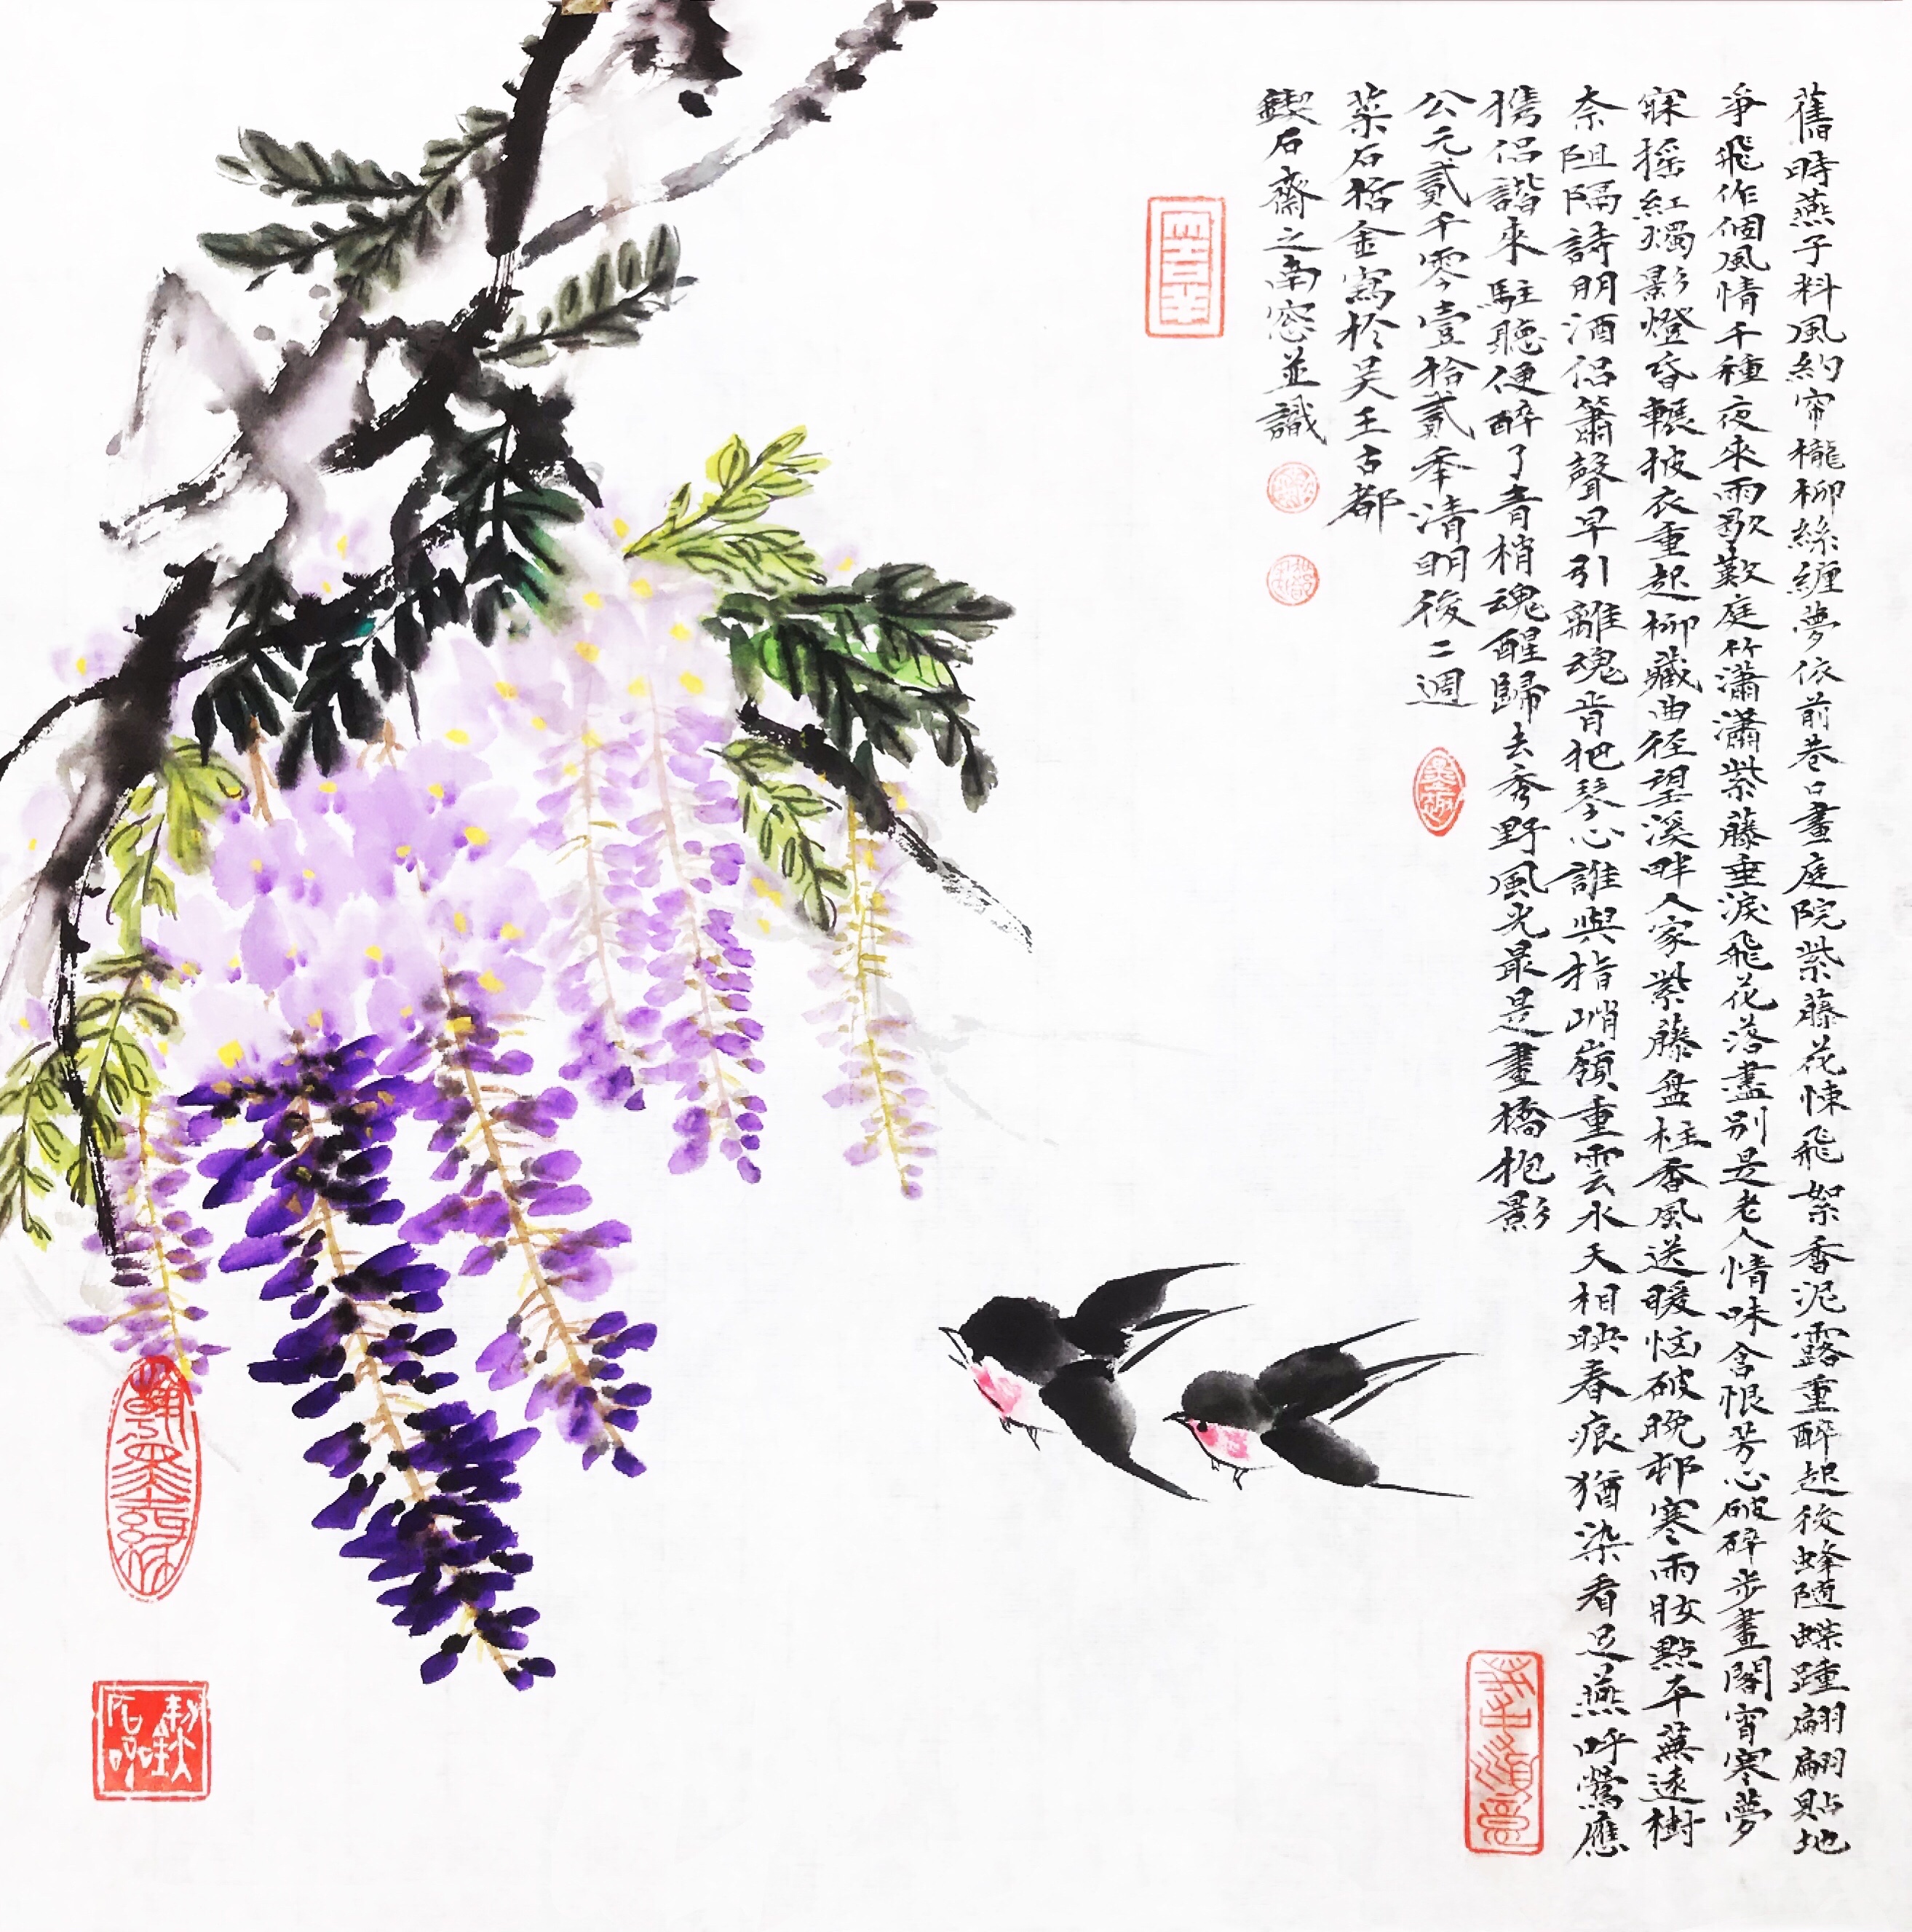 舊時燕子料風約帘櫳柳絲纏夢依前巷口畫庭院紫藤花悚飛絮香泥露重醉起後蜂隨蝶踵翩翩貼地
爭飛作個風情千種夜來雨歇歎庭竹瀟瀟紫藤垂淚飛花落盡別是老人情味含恨芳心破碎步畫閣宵寒夢
寐搖紅燭影燈昏輾披衣重起柳藏曲径望溪畔人家紫藤盘柱香風送暖恼破晚邨寒雨眩點平蕪遠樹
奈阻隔詩朋酒侣簫聲早引離魂肯把琴心誰與指峭嶺重雲水天相映春痕猶染看足燕呼鶯應
携侣諧來駐聽便醉了青梢魂醒歸去秀野風光最是畫橋抱影
公元貳千零壹拾貳年清明後二週
菜石 金寫於吴王古都
鍥石齋之南窓並識